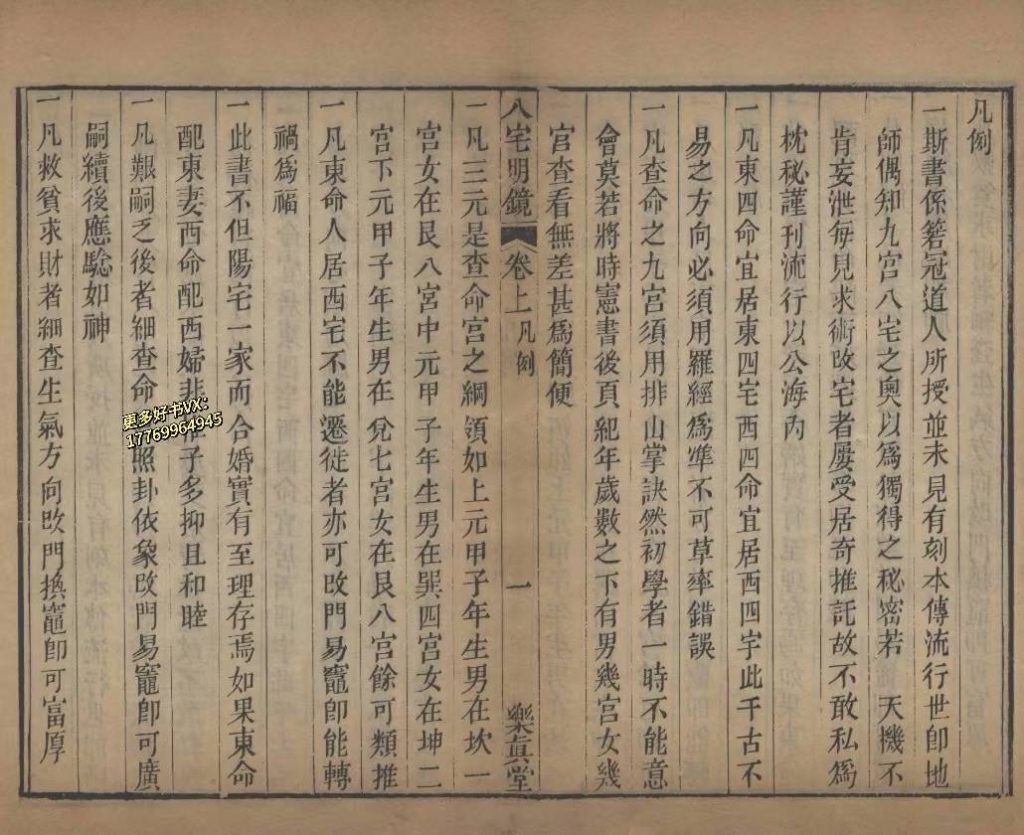 凡例
一斯書係箬冠道人所授並未見有刻本傳流行世卽地
師偶知九宮八宅之奧以爲獨得之秘密若　天機不
肯妄泄每見求術改宅者屢受居奇推託故不敢私爲
枕秘謹刊流行以公海內
一凡東四命宜居東四宅西四命宜居西四宇此千古不
易之方向必須用羅經爲準不可草率錯誤
一凡查命之九宮須用排山掌訣然初學者一時不能意
會莫若將時憲書後頁紀年歲數之下有男幾宮女幾
宮查看無差甚爲簡便
八宅明鏡　卷上　凡例　一　樂真堂
一凡三元是查命宮之綱領如上元甲子年生男在坎一
宮女在艮八宮中元甲子年生男在巽四宮女在坤二
宮下元甲子年生男在兌七宮女在艮八宮餘可類推
一凡東命人居西宅不能遷徙者亦可改門易竈卽能轉
禍爲福
一此書不但陽宅一家而合婚實有至理存焉如果東命
配東妻西命配西婦非推子多抑且和睦
一凡艱嗣乏後者細查命照卦依象改門易竈卽可廣
嗣續後應驗如神
一凡救貧求財者細查生氣方向改門換竈卽可富厚
更多好书VX:
17769964945